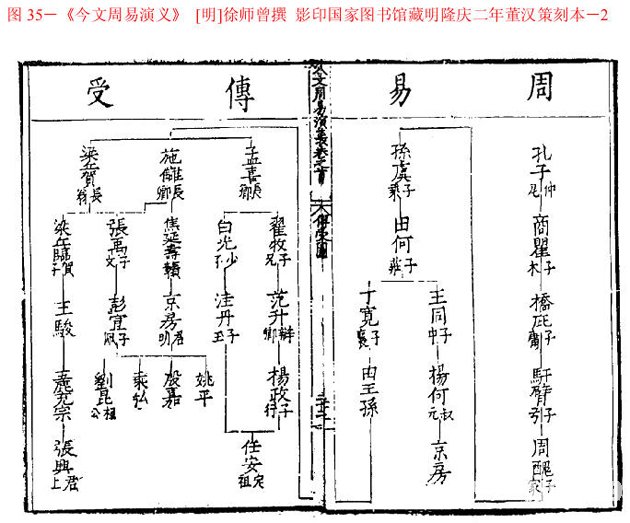 图 35－《今文周易演义》 [明]徐师曾撰 影印国家图书馆藏明隆庆二年董汉策刻本－2
周易傳受
孔子 仲尼
商瞿 子木
橋庇 子庸
馯臂 子弓
周醜 子家
孫虞 子乘
田何 子莊
王同 子中
楊何 叔元
京房
丁寬 子襄
田王孫
今文周易演義卷之首
傳受圖
孟喜 長卿
翟牧 子兄
范升 辯卿
楊政 子行
任安 定祖
白光 少子
洼丹 子玉
施讎 長卿
焦延壽 贛
京房 君明
姚平
殷嘉
乘弘
張禹 子文
彭宣 子佩
劉昆 桓公
梁丘賀 長翁
梁丘臨 賀子
王駿
鹿充宗
張興 君上